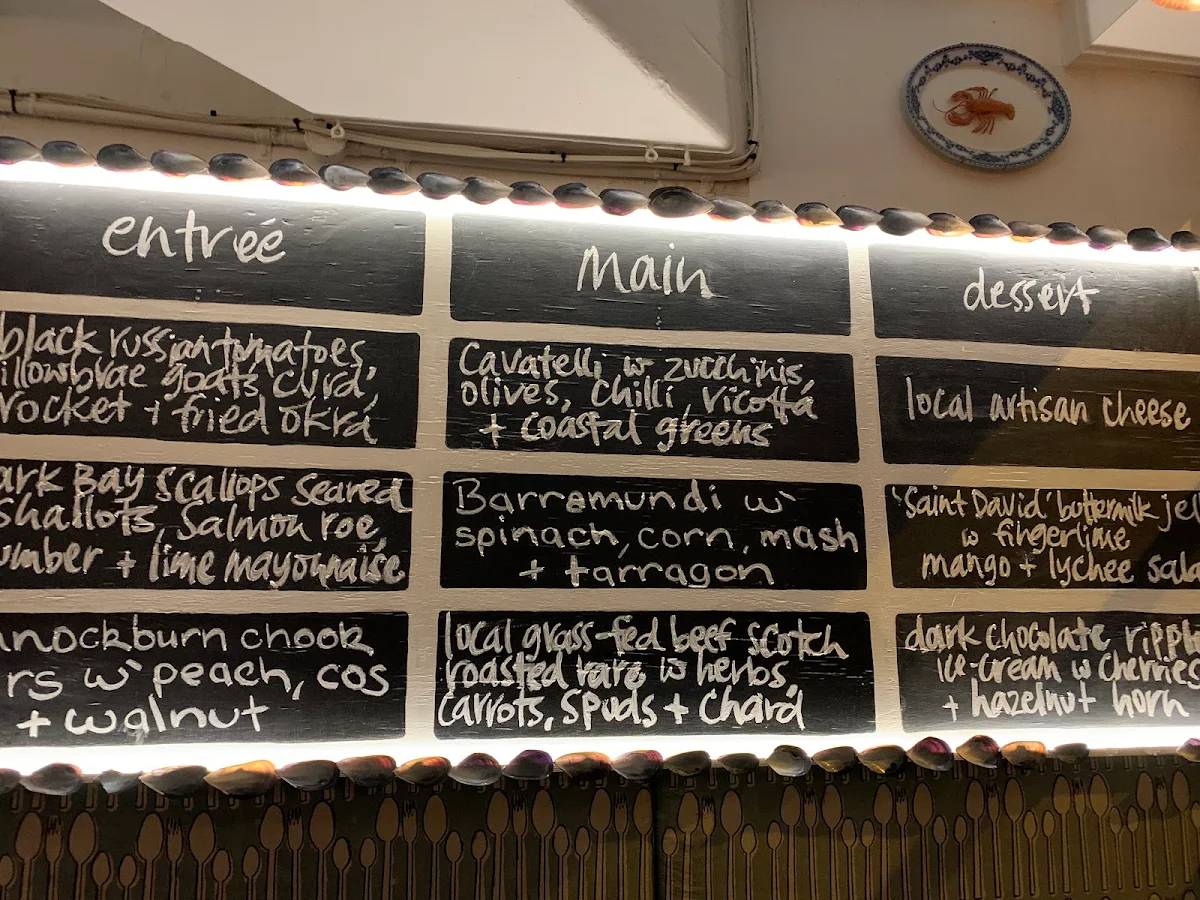 entrée
black russian tomatoes,
illowbrae goats curd,
rocket + fried okra
ark Bay scallops seared
shallots, salmon roe,
umber + lime mayonnaise
nnockburn chook
rs w peach, cos
+ walnut
Main
Cavatelli w zucchinis,
olives, chilli, ricotta
+ coastal greens
Barramundi w
spinach, corn, mash
+ tarragon
local grass-fed beef scotch
roasted rare w herbs,
carrots, spuds + chard
dessert
local artisan cheese
'Saint David' buttermilk jel
w fingerlime
mango + lychee sala
dark chocolate ripple
ice-cream w cherries
+ hazelnut horn